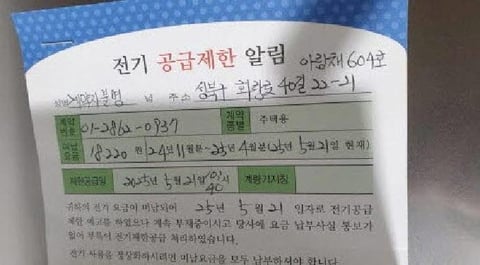 전기 공급제한 알림 아람채 604호
계약자불명 님 주소 성북구 화랑로 40길 22-21
계약번호 01-2862-0937 계약종별 주택용
미납요금 18220원 (24년 11월분~25년 4월분 (25년 5월 21일 현재)
제한공급일 2025년 5월 21일 계량기지침
귀하의 전기 요금이 미납되어 25년 5월 21일자로 전기공급
제한 예고를 하였으나 계속 부재중이시고 당사에 요금 납부사실 통보가
없어 부득이 전기제한공급 처리하였습니다.
전기 사용을 정상화하시려면 미납요금을 모두 납부하셔야 합니다.